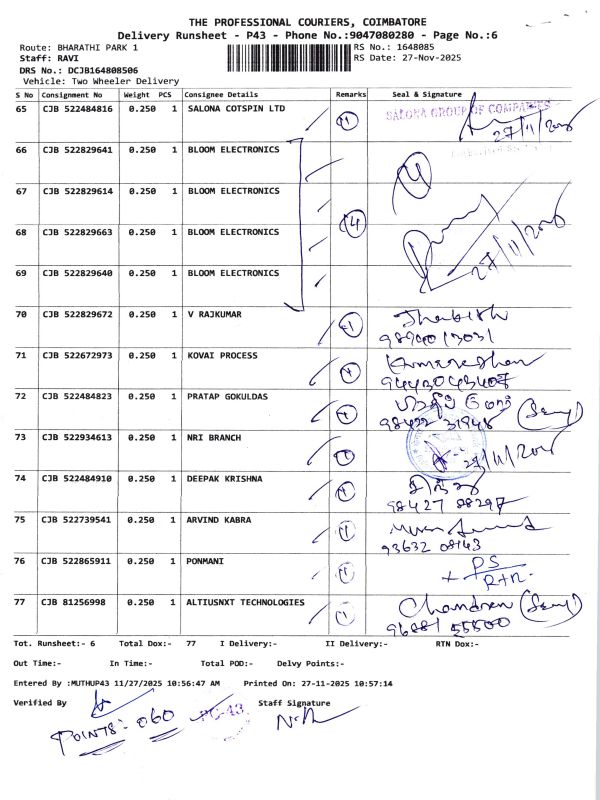 THE PROFESSIONAL COURIERS, COIMBATORE
Delivery Runsheet - P43 - Phone No.:9047080280 - Page No.:6
Route: BHARATHI PARK 1 RS No.: 1648085
Staff: RAVI RS Date: 27-Nov-2025
DRS No.: DCJB164808506
Vehicle: Two Wheeler Delivery
S No Consignment No Weight PCS Consignee Details Remarks Seal & Signature
65 CJB 522484816 0.250 1 SALONA COTSPIN LTD 1 SALONA GROUP OF COMPANIES
27/11/2025
66 CJB 522829641 0.250 1 BLOOM ELECTRONICS
4
67 CJB 522829614 0.250 1 BLOOM ELECTRONICS
4
68 CJB 522829663 0.250 1 BLOOM ELECTRONICS
27/11/2025
69 CJB 522829640 0.250 1 BLOOM ELECTRONICS
70 CJB 522829672 0.250 1 V RAJKUMAR 1
71 CJB 522672973 0.250 1 KOVAI PROCESS 1 Kumareshan
72 CJB 522484823 0.250 1 PRATAP GOKULDAS 1
98422 31948
73 CJB 522934613 0.250 1 NRI BRANCH 1
27/11/2025
74 CJB 522484910 0.250 1 DEEPAK KRISHNA 1
98427 88297
75 CJB 522739541 0.250 1 ARVIND KABRA 1
93632 08143
76 CJB 522865911 0.250 1 PONMANI 1 PS
RTN.
77 CJB 81256998 0.250 1 ALTIUSNXT TECHNOLOGIES 1 Chandran
96881 55500
Tot. Runsheet:- 6 Total Dox:- 77 I Delivery:- II Delivery:- RTN Dox:-
Out Time:- In Time:- Total POD:- Delvy Points:-
Entered By :MUTHUP43 11/27/2025 10:56:47 AM Printed On: 27-11-2025 10:57:14
Verified By Staff Signature
POINTS:- 060 PC-43